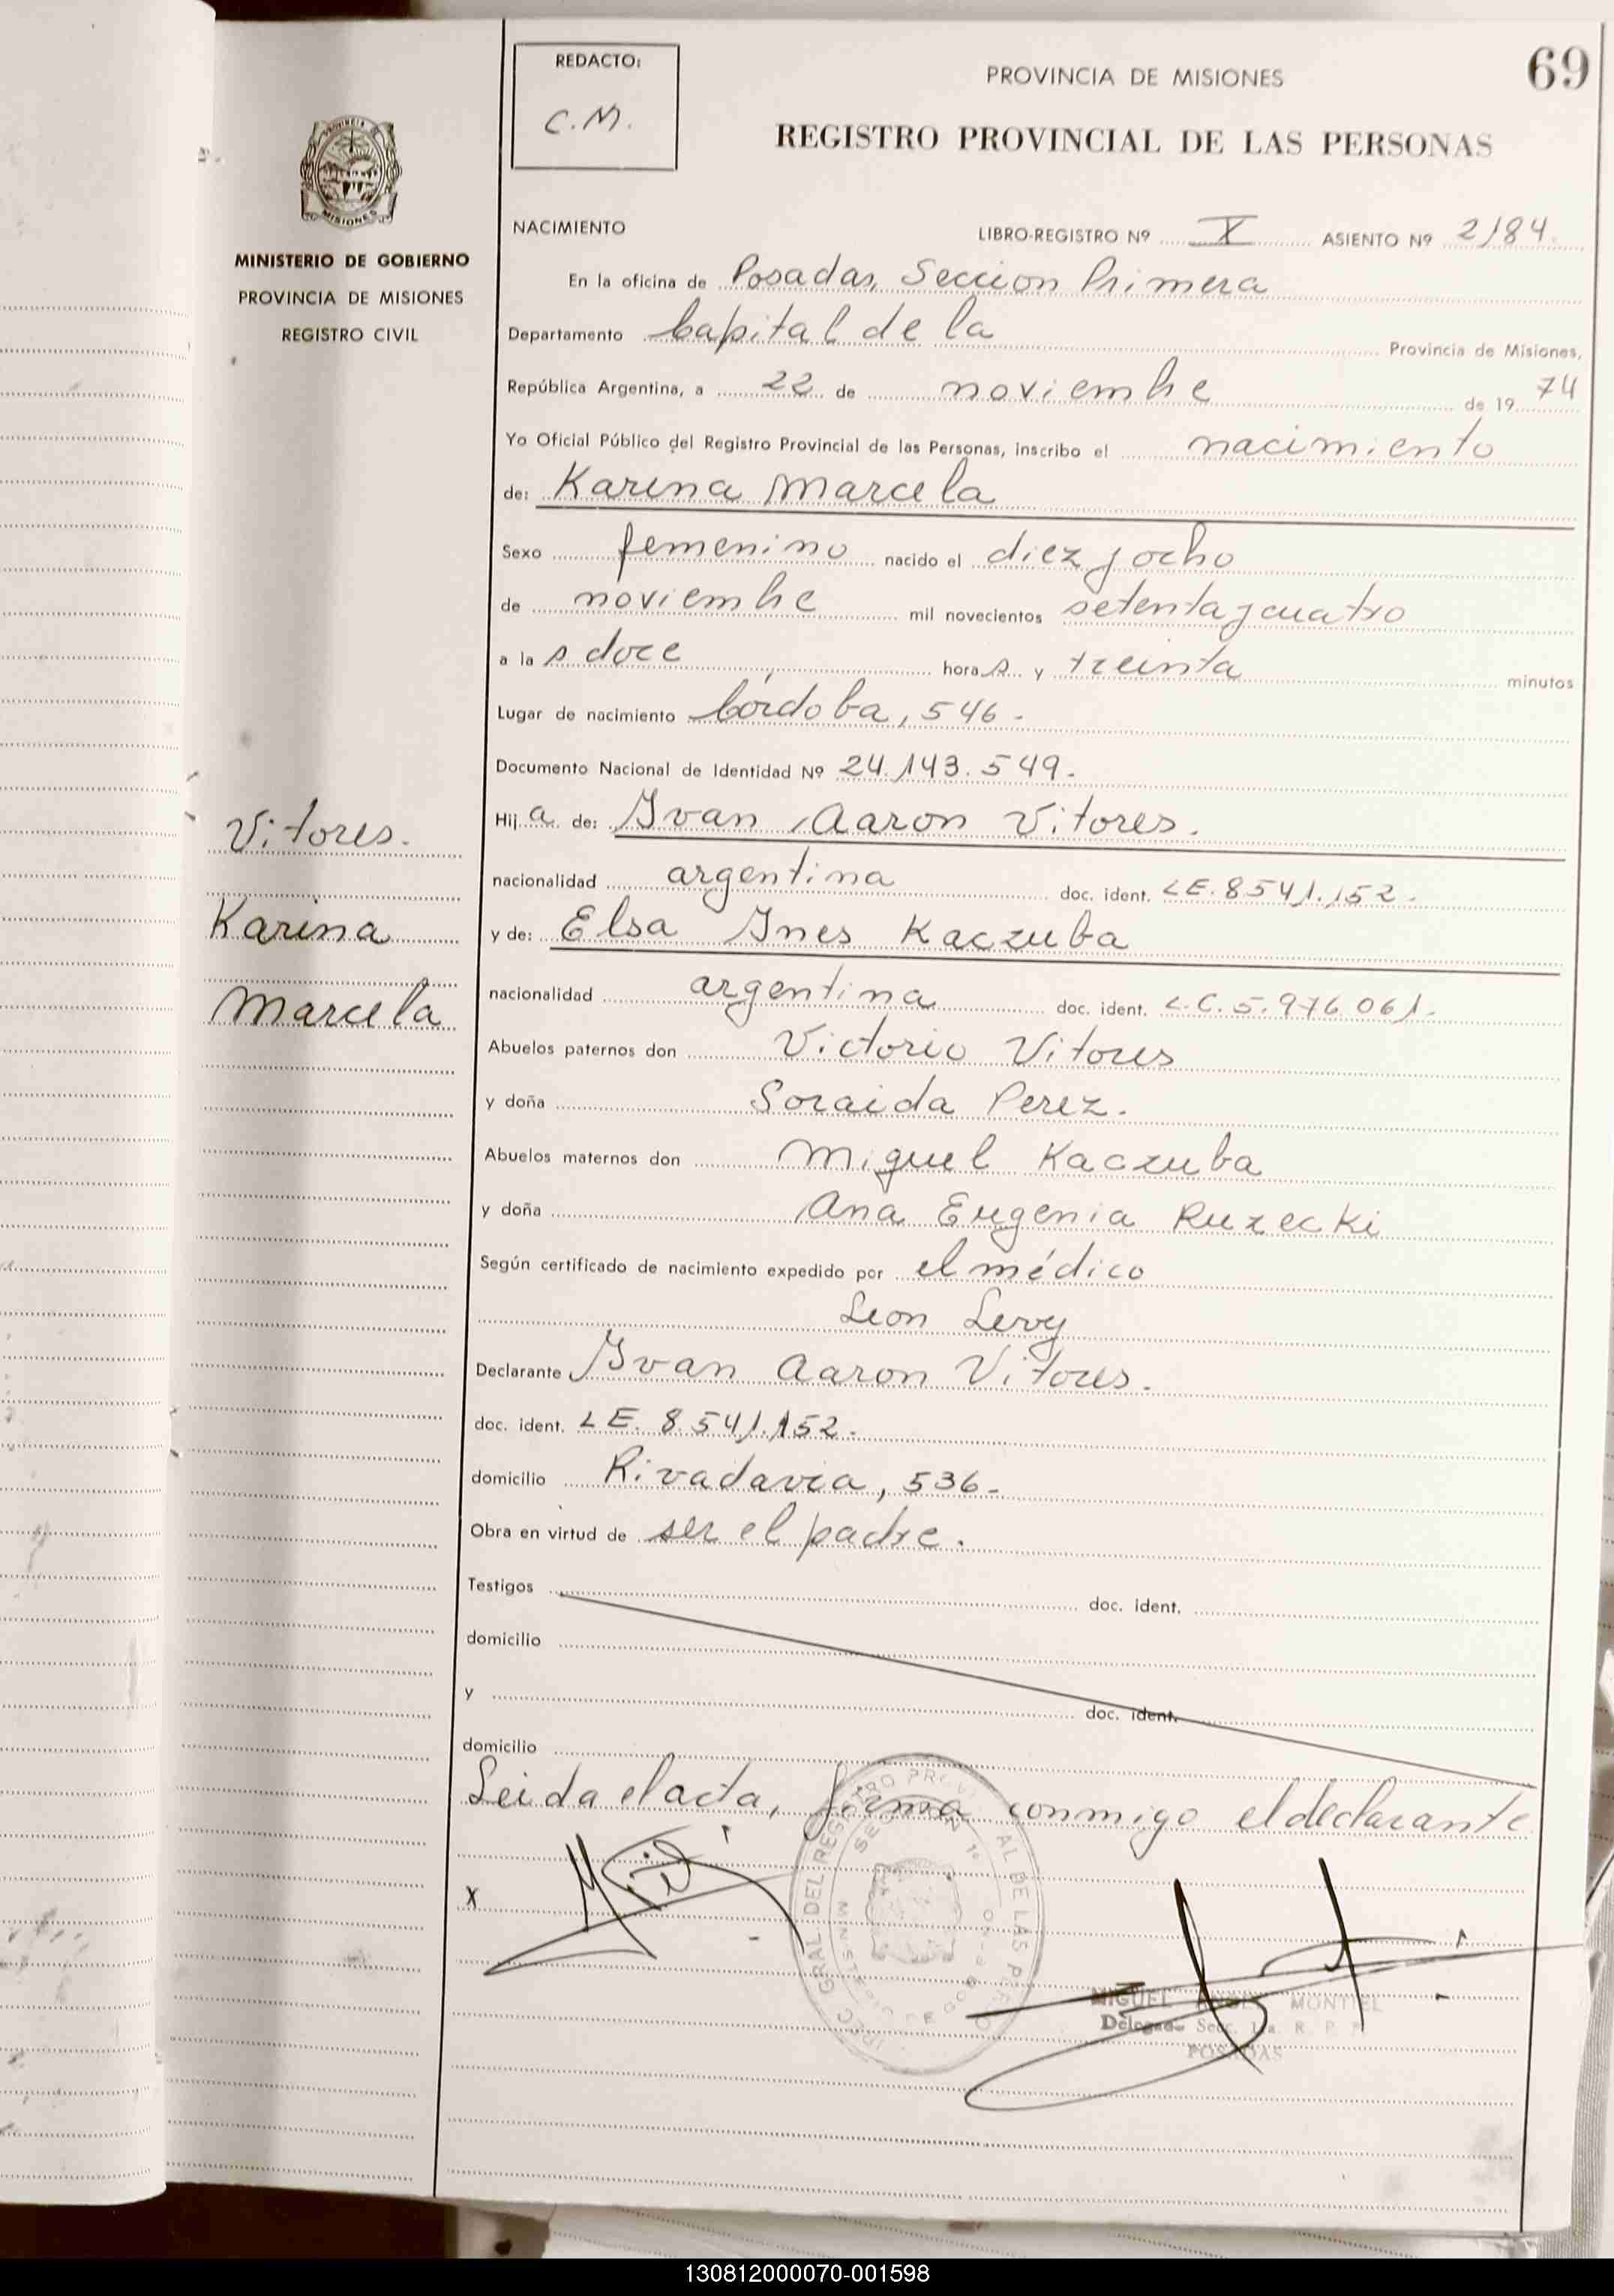 69
REDACTO:
C.M.
PROVINCIA DE MISIONES
REGISTRO PROVINCIAL DE LAS PERSONAS
PROVINCIA DE
MISIONES
MINISTERIO DE GOBIERNO
PROVINCIA DE MISIONES
REGISTRO CIVIL
NACIMIENTO LIBRO-REGISTRO Nº X ASIENTO Nº 2184.
En la oficina de Posadas, Seccion Primera
Departamento Capital de la Provincia de Misiones,
República Argentina, a 22 de noviembre de 19 74
Yo Oficial Público del Registro Provincial de las Personas, inscribo el nacimiento
de: Karina Marcela
Sexo femenino nacido el diez y ocho
de noviembre mil novecientos setenta y cuatro
a la s doce hora s y treinta minutos
Lugar de nacimiento Córdoba, 546.
Documento Nacional de Identidad Nº 24.143.549.
Vitores.
Karina
Marcela
Hij a de: Ivan Aaron Vitores.
nacionalidad argentina doc. ident. LE. 8541.152.
y de: Elsa Ines Kaczuba
nacionalidad argentina doc. ident. L.C. 5.976.061.
Abuelos paternos don Victorio Vitores
y doña Soraida Perez.
Abuelos maternos don Miguel Kaczuba
y doña Ana Eugenia Ruzecki
Según certificado de nacimiento expedido por el médico
Leon Levy
Declarante Ivan Aaron Vitores.
doc. ident. LE. 8.541.152.
domicilio Rivadavia, 536.
Obra en virtud de ser el padre.
Testigos doc. ident.
domicilio
y doc. ident.
domicilio
Leida el acta, firma conmigo el declarante
X
MIGUEL MONTIEL
Delegado Secc. 1a. R. P. P.
POSADAS
130812000070-001598